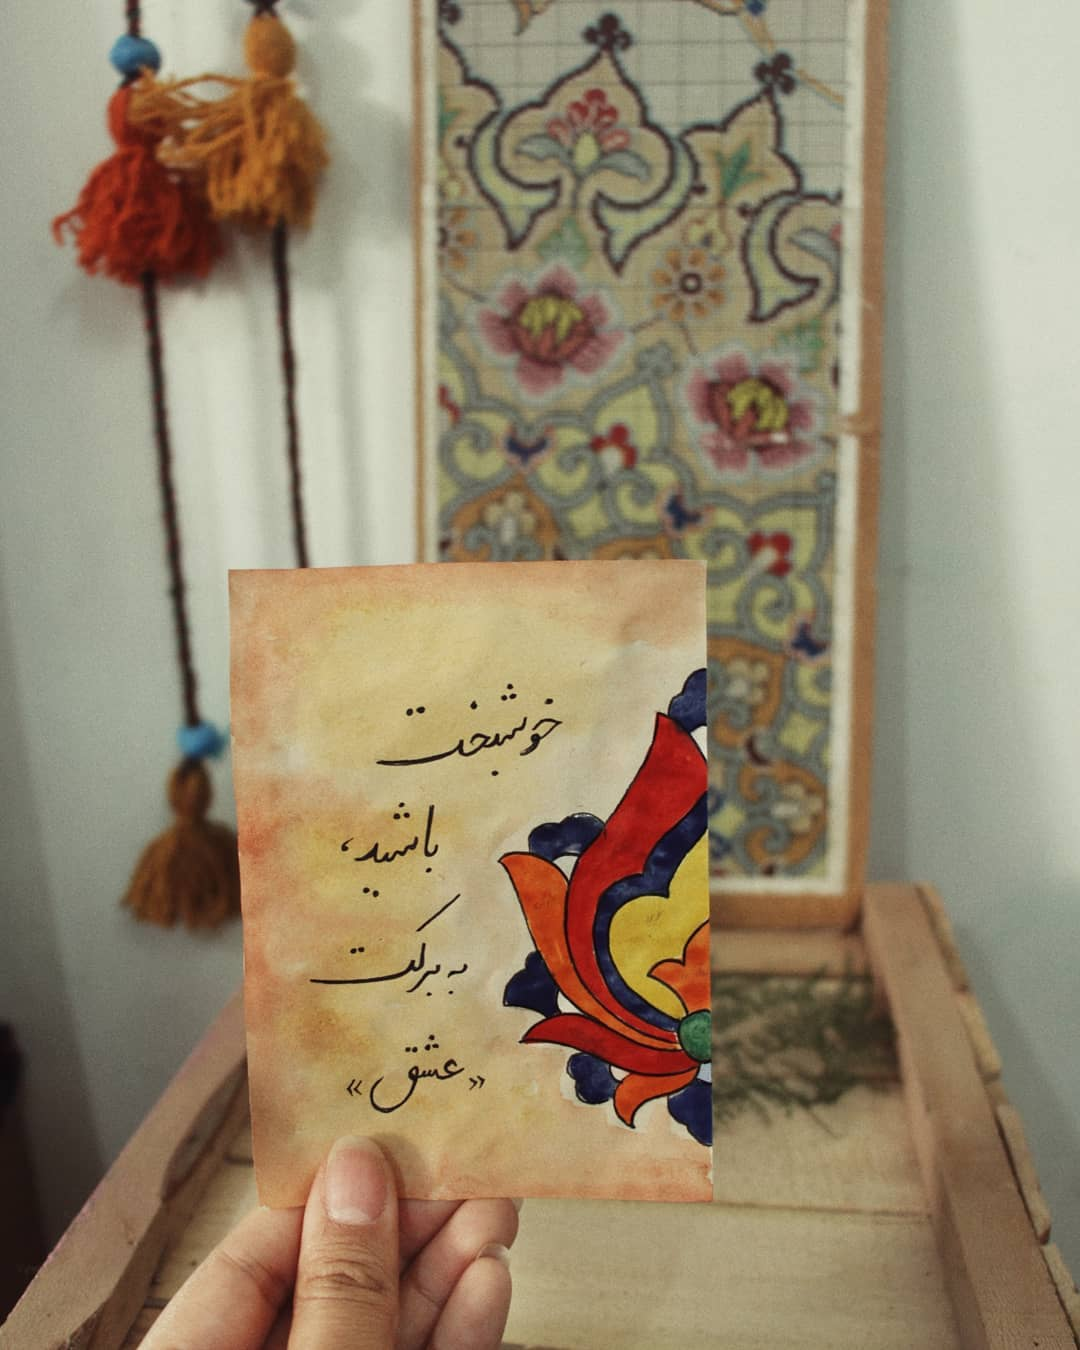 خوشبخت
باشید،
به برکت
«عشق»